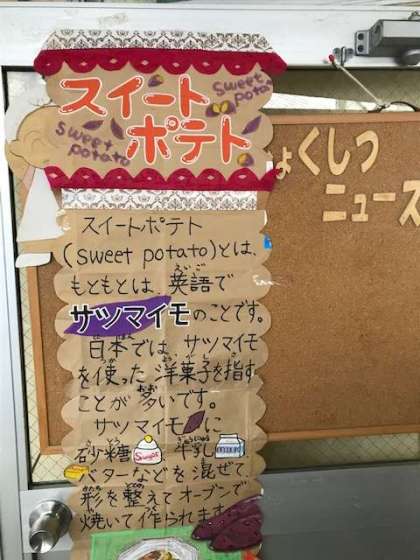 スイート
ポテト
sweet potato
sweet potato
スイートポテト
(sweet potato)とは、
もともとは、英語で
サツマイモのことです。
日本では、サツマイモ
を使った洋菓子を指す
ことが多いです。
サツマイモに
砂糖 Sugar 牛乳
バターなどを混ぜて
形を整えてオーブンで
焼いて作られます。
ょくしつ
ニュース